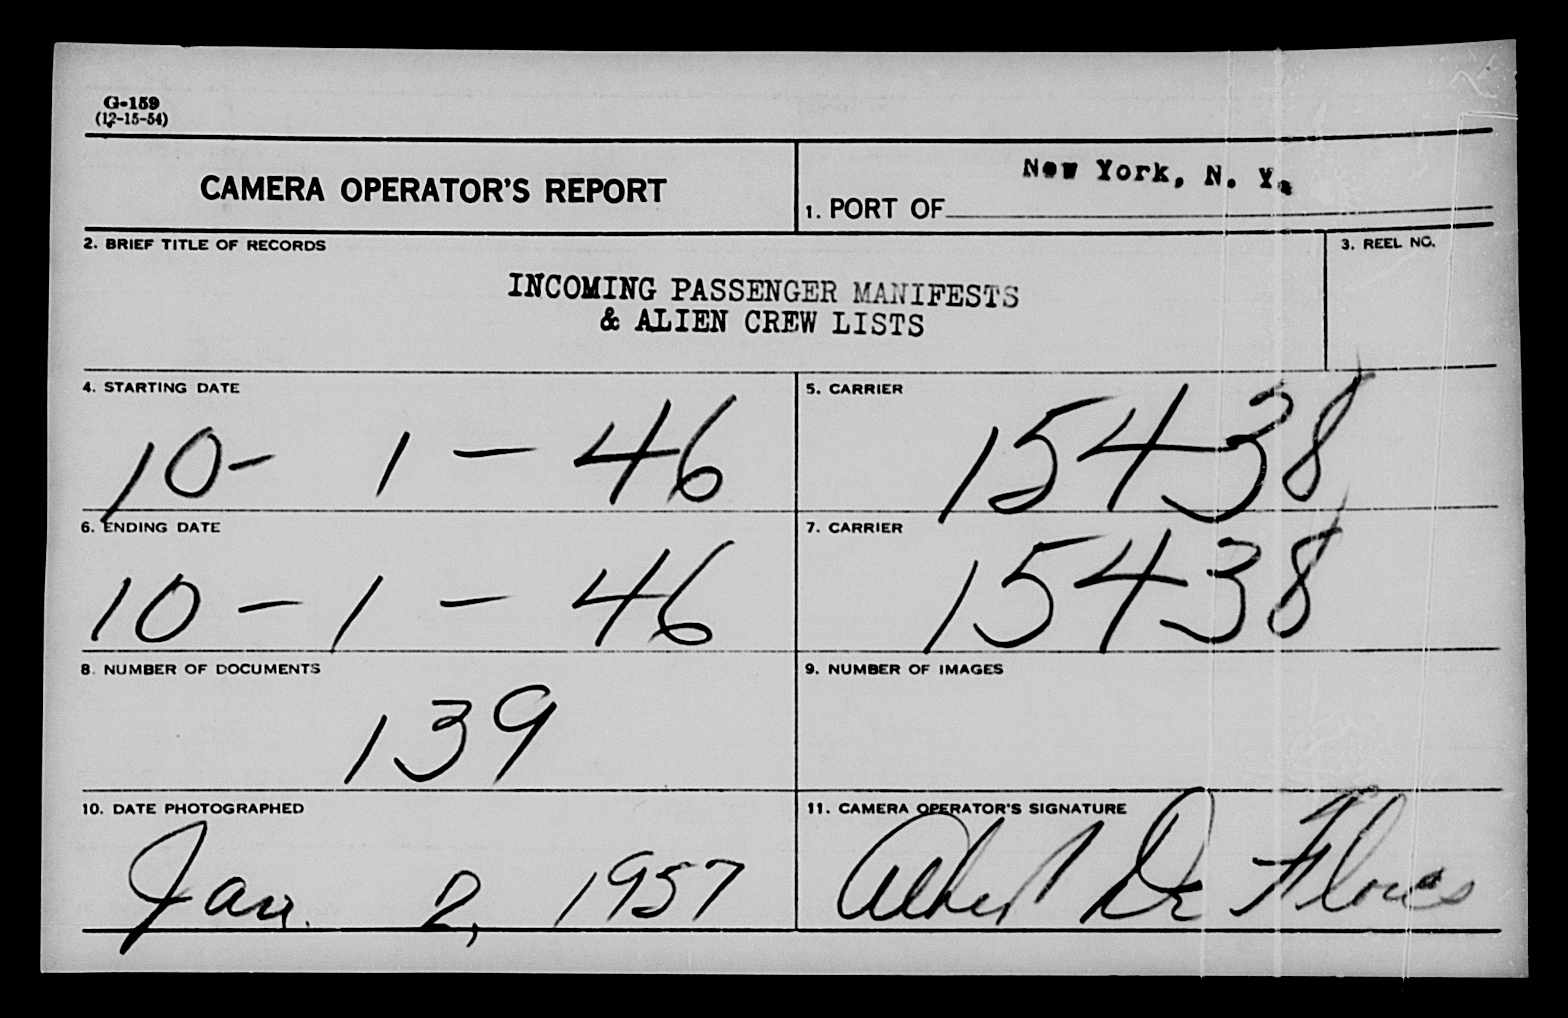 G-159
(12-15-54)
CAMERA OPERATOR'S REPORT
New York, N. Y.
1. PORT OF
2. BRIEF TITLE OF RECORDS
3. REEL NO.
INCOMING PASSENGER MANIFESTS
& ALIEN CREW LISTS
4. STARTING DATE
10-1-46
5. CARRIER
15438
6. ENDING DATE
10-1-46
7. CARRIER
15438
8. NUMBER OF DOCUMENTS
139
9. NUMBER OF IMAGES
10. DATE PHOTOGRAPHED
Jan. 2, 1957
11. CAMERA OPERATOR'S SIGNATURE
Albert De Flores